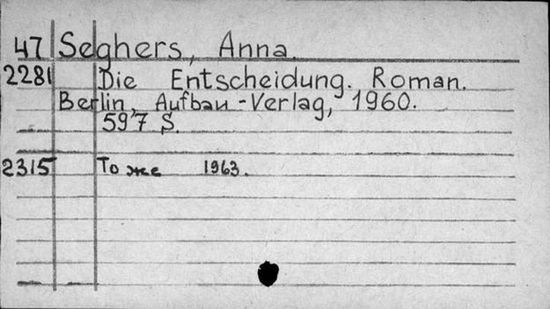 47 Seghers, Anna.
2281 Die Entscheidung. Roman.
Berlin, Aufbau-Verlag, 1960.
597 S.
2315 То же 1963.